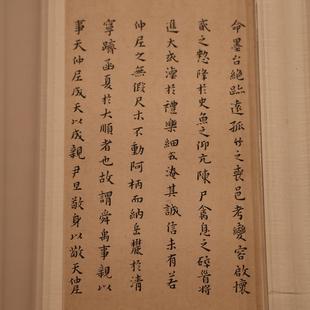 命墨台絶跡遠孤竹之喪邑考變容啟壞
之愸隆於史魚之仰亢陳尸禽息之碎首將
進大或淪於禮樂細或其誠信未有若
仲尼之無假尺木不動阿柄而納岳麓於清
寧躋函夏於大順者也故謂舜禹事親以
事天仲尼成天以成親尹旦敬身以敬天仲尼